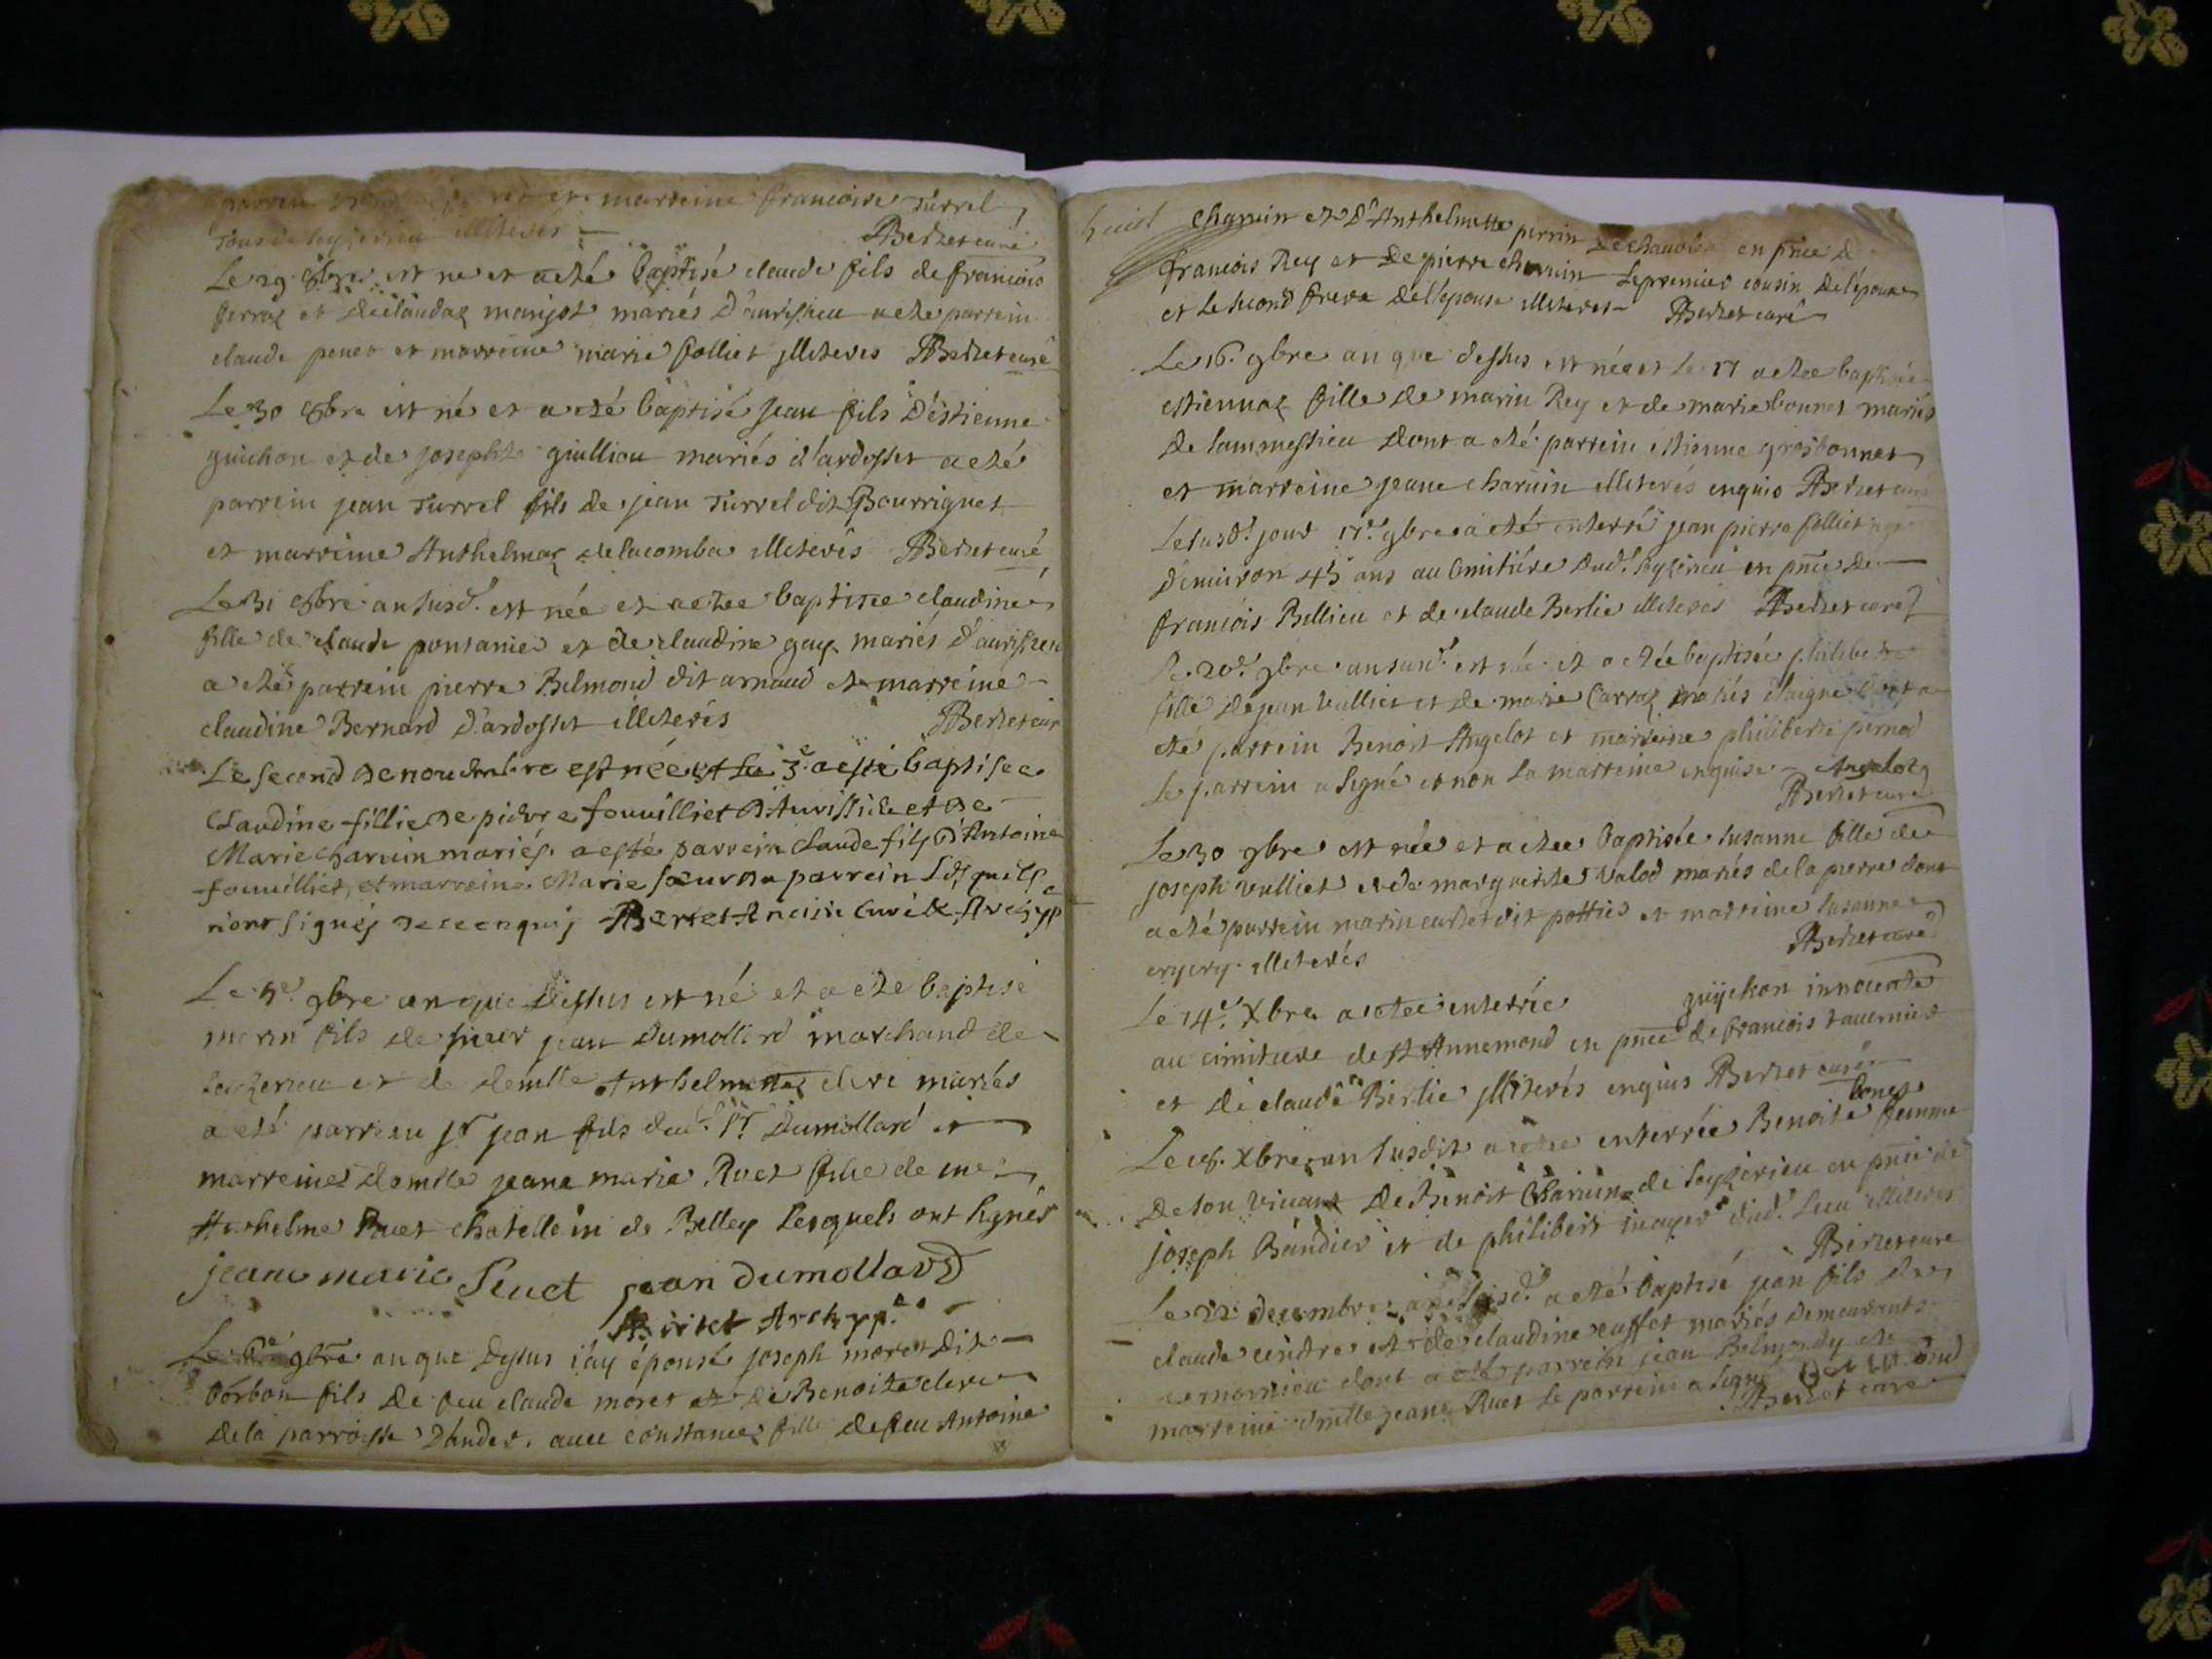 et marreine francoise Turrel
illiterés Berzet curé
Le 29 8bre est né et a eté baptisé claude fils de francois
ferraz et de claudaz manjot mariés d'aurissieu a eté parrein
claude penet et marreine marie folliet illiterés Berzet curé
Le 30 8bre est né et a eté baptisé jean fils d'estienne
guichon et de josephte guilliou mariés d'ardosset a eté
parrein jean Turrel fils de jean Turrel dit Bourriguet
et marreine Anthelmaz delacomba illiterés Berzet curé
Le 31 8bre an susd. est née et a etee baptisee claudine
fille de claude pontanier et de claudine gay mariés d'aurissieu
a eté parrein pierre Belmond dit arnaud et marreine
claudine Bernard d'ardosset illiterés Berzet cur
Le second de nouembre est née et le 3e a esté baptisee
Claudine fillie de pierre fouuilliet d'Auissieu et de
Marie charuin mariés. a esté parrein Claude fils d'Antoine
fouuilliet, et marreine Marie soeur du parrein Lesquels
n'ont signés de ce enquis Berzet Ancien Curé & Archyp
Le 5e 9bre an que dessus est né et a eté baptisé
marin fils de sieur jean Dumollard marchand de
et de demlle Anthelmette clerc mariés
a eté parrein sr jean fils dud. sr Dumollard et
marreine demlle jeane marie Ruet fille de me
Anthelme Ruet chatellein de Belley Lesquels ont signés
jeane marie Ruet jean dumollard
Berzet Archypp.
Le 6e 9bre an que dessus i'ay épousé joseph moret dit
borbon fils de feu claude moret et de Benoite clerc
de la parroisse d'andert. auec constance fille de feu Antoine
charuin et d'Anthelmette perrin en pnce d
francois Rey et de pierre charuin Le premier cousin de l'epouse
et le second frere de l'epouse illiterés Berzet curé
Le 16. 9bre an que dessus est née et le 17 a etee baptisée
estiennaz fille de marin Rey et de marie bonnet mariés
de dont a eté parrein estienne grosbonnet
et marreine jeane charuin illiterés enquis Berzet curé
Le susd. jour 17e 9bre a eté enterré jean pierre folliet
d'enuiron 45 ans au cimitiére dud. Ceyzerieu en pnce de
francois Billieu et de claude Berlie illiterés Berzet curé
Le 20e 9bre an susd. est née et a etée baptisée philiberte
fille de jean vulliet et de marie Carraz mariés d'aigne dont a
eté parrein Benoit Angelot et marreine philiberte pernod
Le parrein a signé et non la marreine enquise Angelot
Berzet curé
Le 30 9bre est née et a etee baptisée susanne fille de
joseph vulliet et de marguerite valod mariés de la pierre dont
a eté parrein marin curtet dit pottier et marreine susanne
illiterés Berzet curé
Le 14e Xbre a etee enterrée guychon innocente
au cimitiere de st Annemond en pnce de francois tauernier
et de claude Berlie illiterés enquis Berzet curé
Le Xbre an susdit a etee enterrée Benoite bonet femme
de son viuant de Benoit Charuin de Ceyzerieu en pnce de
joseph Bandier et de philibert dud. lieu illiterés
Berzet curé
Le 22 decembre an susd. a eté baptisé jean fils de
claude cindre et de claudine cusset mariés demeurants
a mornieu dont a eté parrein jean Belmondy et
marreine dmlle jeane Ruet le parrein a signé
Berzet curé